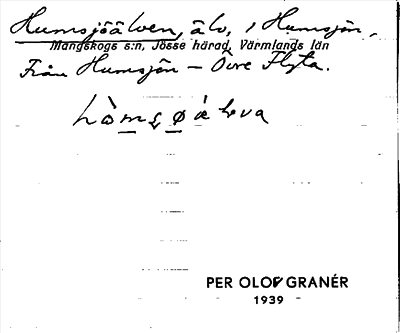 Humsjöälven, älv, i Humsjön,
Mangskogs s:n, Jösse härad, Värmlands län
Från Humsjön – Övre Flyta.
PER OLOF GRANÉR
1939